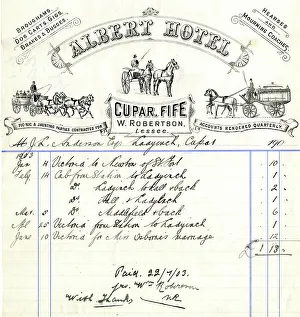 BROUGHAMS,
DOG CARTS, GIGS,
BRAKES & BUSSES.
HEARSES
AND
MOURNING COACHES.
ALBERT HOTEL
CUPAR, FIFE
W. ROBERTSON,
Lessee.
PIC-NIC & SHOOTING PARTIES CONTRACTED FOR.
ACCOUNTS RENDERED QUARTERLY.
J. L. Anderson Esq. Ladyinch, Cupar 190
1903
Jan 4 Victoria to Newton of 10
Feby 14 Cab from Station to Ladyinch 1
Do Ladyinch to & back 2
Do & Ladyinch 1
Mar. 3 Do & back 6
Apl 25 Victoria from Station to Ladyinch 1
June 10 Victoria for Miss Osborne's marriage 12
£ 1 13
Paid. 22/7/03.
pro. Wm Robertson
With Thanks